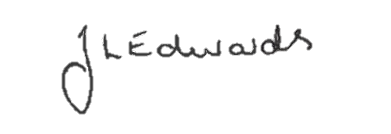 J L Edwards